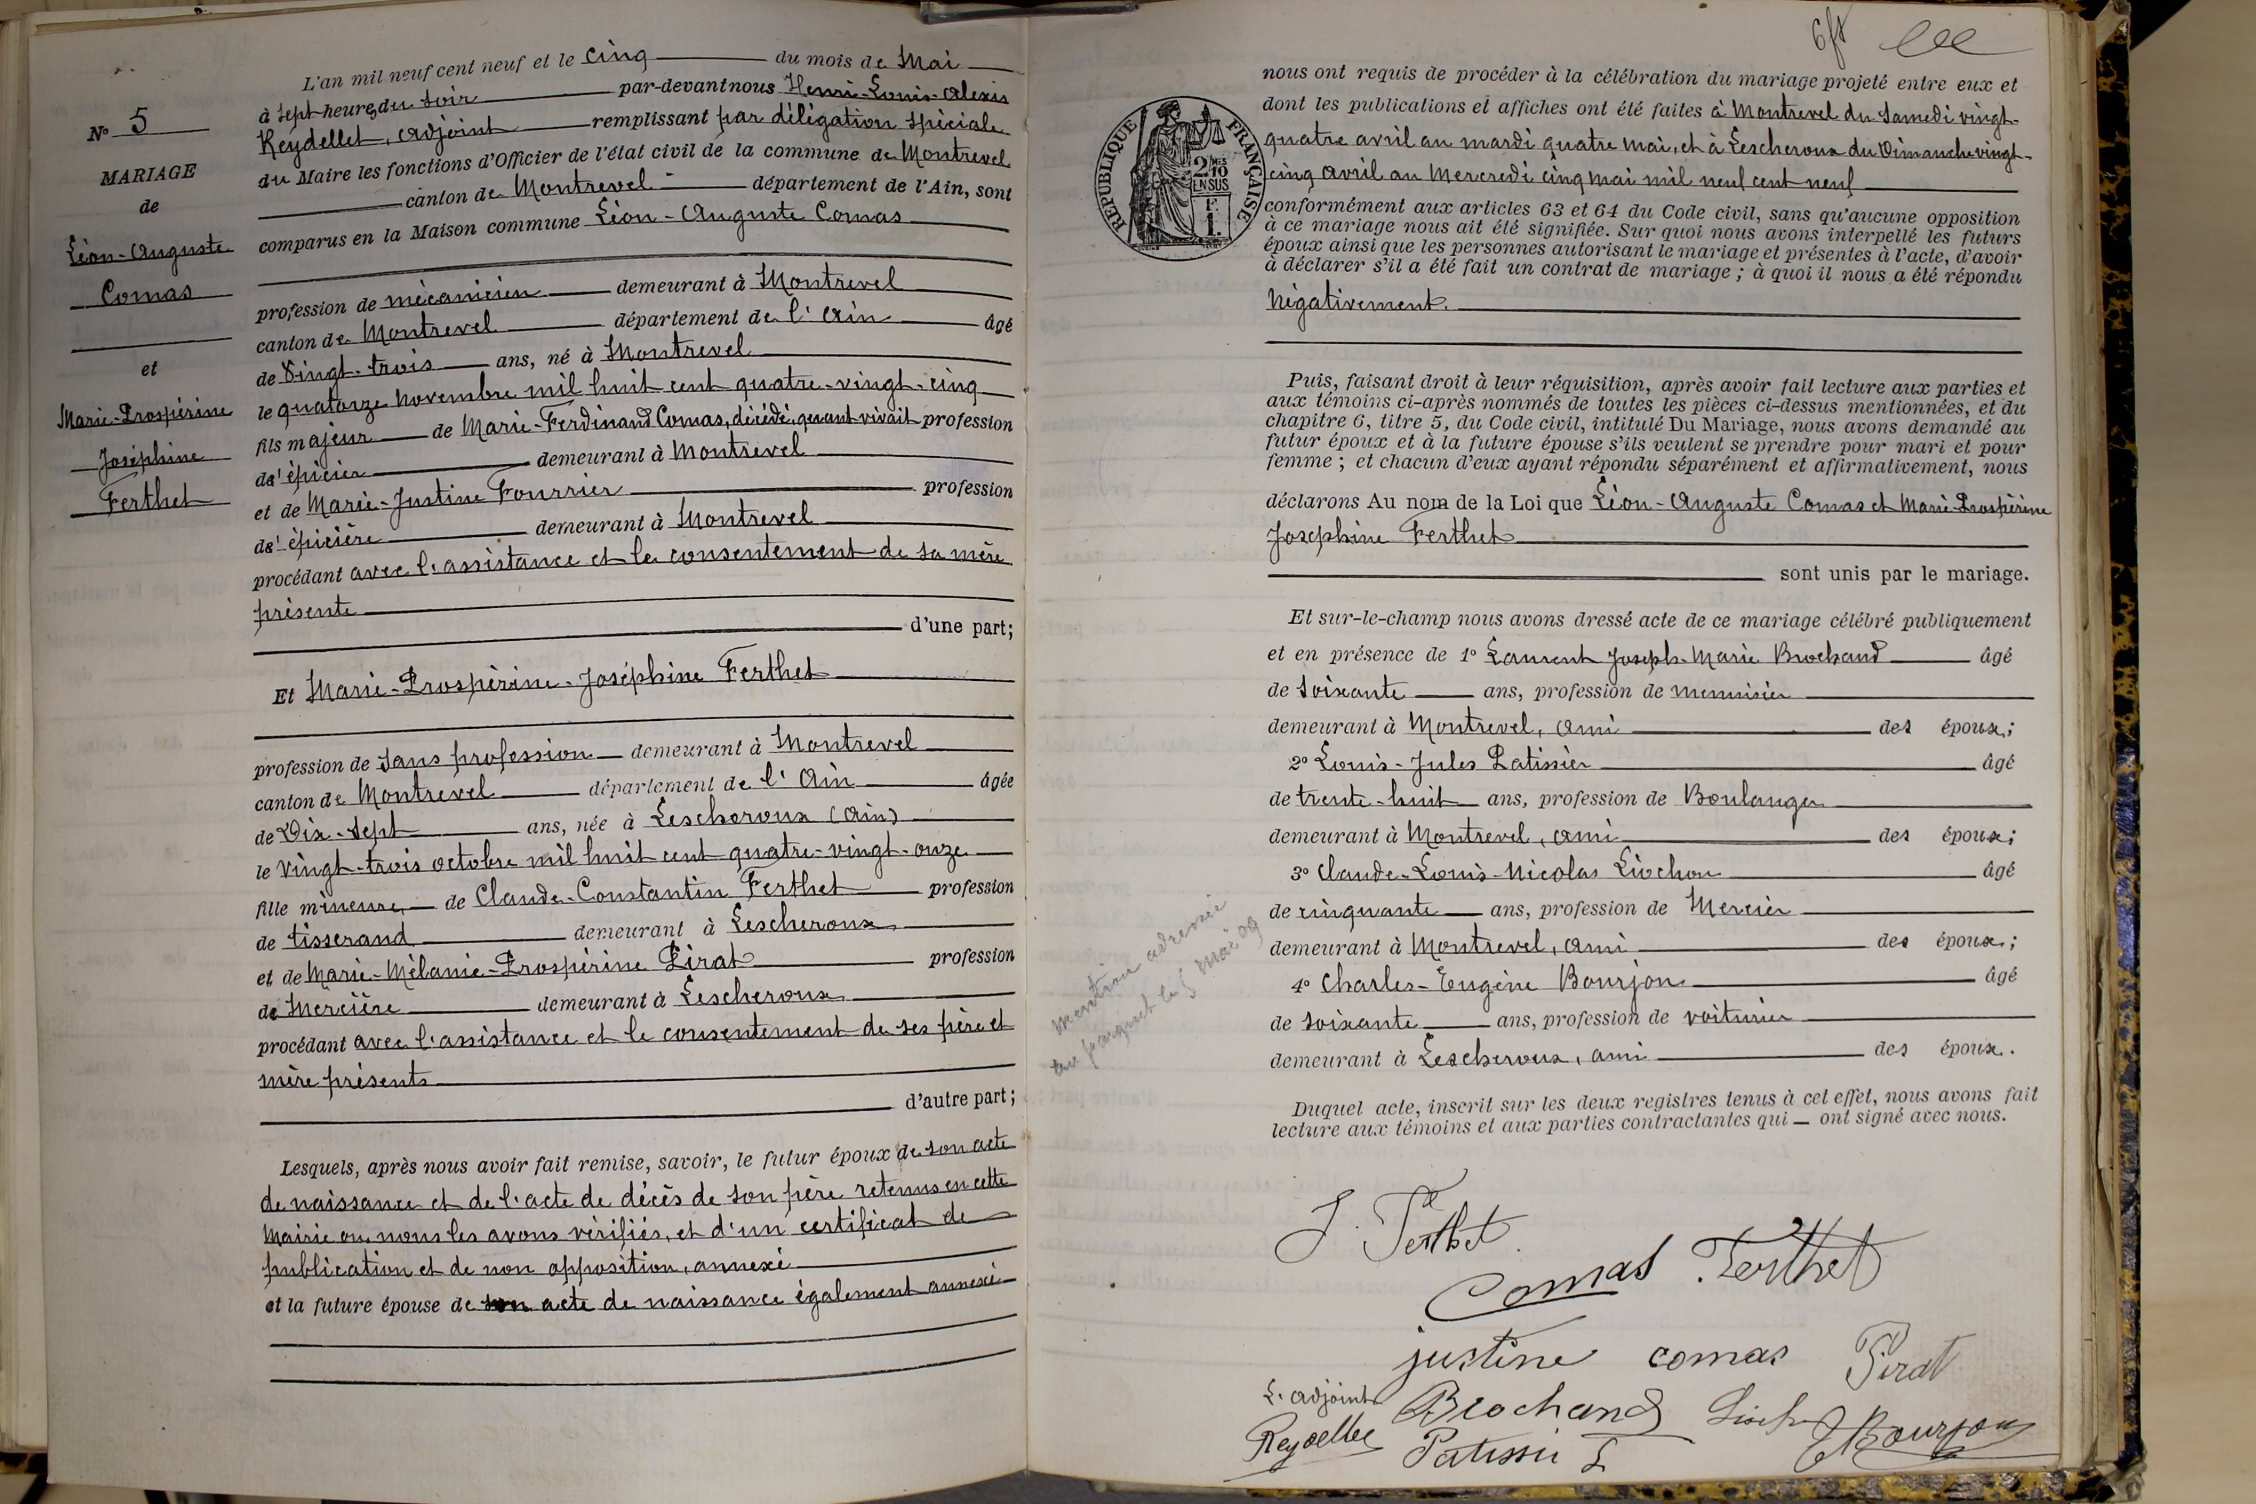 N° 5
MARIAGE
de
Léon-Auguste
Comas
et
Marie-Prospérine
Joséphine
Ferthet
L'an mil neuf cent neuf et le cinq du mois de Mai
à sept heures du soir par-devant nous Henri-Louis-Alexis
Reydellet, adjoint remplissant par délégation spéciale
du Maire les fonctions d'Officier de l'état civil de la commune de Montrevel
canton de Montrevel département de l'Ain, sont
comparus en la Maison commune Léon-Auguste Comas
profession de mécanicien demeurant à Montrevel
canton de Montrevel département de l'Ain âgé
de Vingt-trois ans, né à Montrevel
le quatorze novembre mil huit cent quatre-vingt-cinq
fils majeur de Marie-Ferdinand Comas, décédé, quant vivait profession
d'épicier demeurant à Montrevel
et de Marie-Justine Fourrier profession
d'épicière demeurant à Montrevel
procédant avec l'assistance et le consentement de sa mère
présente
d'une part;
Et Marie-Prospérine-Joséphine Ferthet
profession de sans profession demeurant à Montrevel
canton de Montrevel département de l'Ain âgée
de Dix-sept ans, née à Lescheroux (Ain)
le vingt-trois octobre mil huit cent quatre-vingt-onze
fille mineure de Claude-Constantin Ferthet profession
de tisserand demeurant à Lescheroux
et de Marie-Mélanie-Prospérine Pirat profession
de Mercière demeurant à Lescheroux
procédant avec l'assistance et le consentement de ses père et
mère présents
d'autre part;
Lesquels, après nous avoir fait remise, savoir, le futur époux de son acte
de naissance et de l'acte de décès de son père retenus en cette
Mairie où nous les avons vérifiés, et d'un certificat de
publication et de non opposition, annexé
et la future épouse de son acte de naissance également annexé
6ft
nous ont requis de procéder à la célébration du mariage projeté entre eux et
dont les publications et affiches ont été faites à Montrevel du Samedi vingt-
quatre avril au mardi quatre mai, et à Lescheroux du Dimanche vingt-
cinq avril au Mercredi cinq mai mil neuf cent neuf
RÉPUBLIQUE FRANÇAISE
2 Mes 10
EN SUS
F.
1.
conformément aux articles 63 et 64 du Code civil, sans qu'aucune opposition
à ce mariage nous ait été signifiée. Sur quoi nous avons interpellé les futurs
époux ainsi que les personnes autorisant le mariage et présentes à l'acte, d'avoir
à déclarer s'il a été fait un contrat de mariage; à quoi il nous a été répondu
Négativement.
Puis, faisant droit à leur réquisition, après avoir fait lecture aux parties et
aux témoins ci-après nommés de toutes les pièces ci-dessus mentionnées, et du
chapitre 6, titre 5, du Code civil, intitulé Du Mariage, nous avons demandé au
futur époux et à la future épouse s'ils veulent se prendre pour mari et pour
femme; et chacun d'eux ayant répondu séparément et affirmativement, nous
déclarons Au nom de la Loi que Léon-Auguste Comas et Marie-Prospérine
Joséphine Ferthet
sont unis par le mariage.
Et sur-le-champ nous avons dressé acte de ce mariage célébré publiquement
et en présence de 1° Laurent Joseph-Marie Brochand âgé
de soixante ans, profession de menuisier
demeurant à Montrevel, ami des époux;
2° Louis-Jules Patissier âgé
de trente-huit ans, profession de Boulanger
demeurant à Montrevel, ami des époux;
3° Claude-Louis-Nicolas Liochon âgé
de cinquante ans, profession de Mercier
demeurant à Montrevel, ami des époux;
4° Charles-Eugène Bourjon âgé
de soixante ans, profession de voiturier
demeurant à Lescheroux, ami des époux.
mention adressée
au parquet le 5 mai 09
Duquel acte, inscrit sur les deux registres tenus à cet effet, nous avons fait
lecture aux témoins et aux parties contractantes qui ont signé avec nous.
J. Ferthet
Comas Ferthet
justine comas Pirat
L'adjoint
Reydellet
Brochand Bourjon
Patissier L